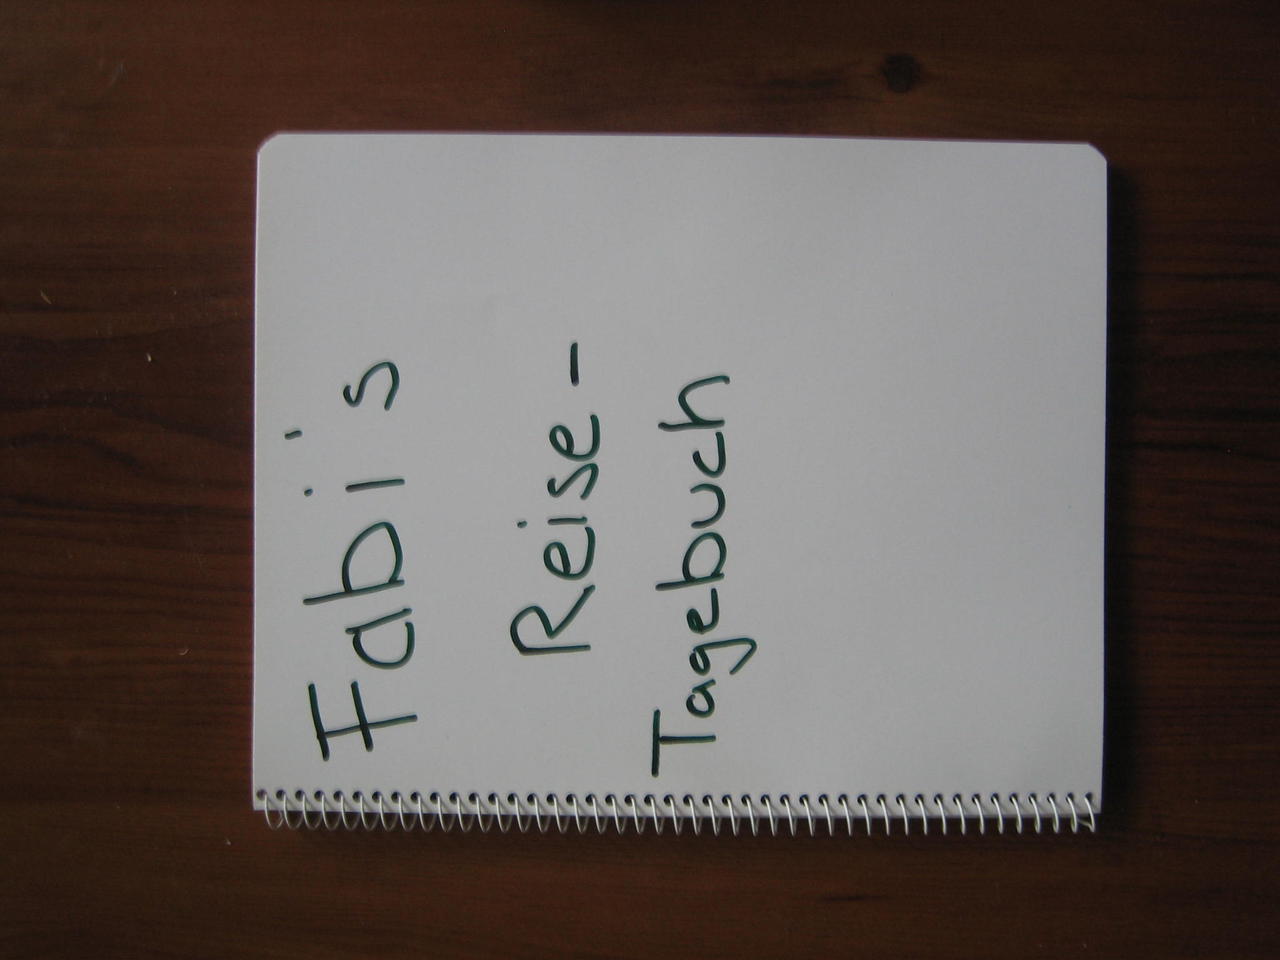 Fabi's
Reise-
Tagebuch